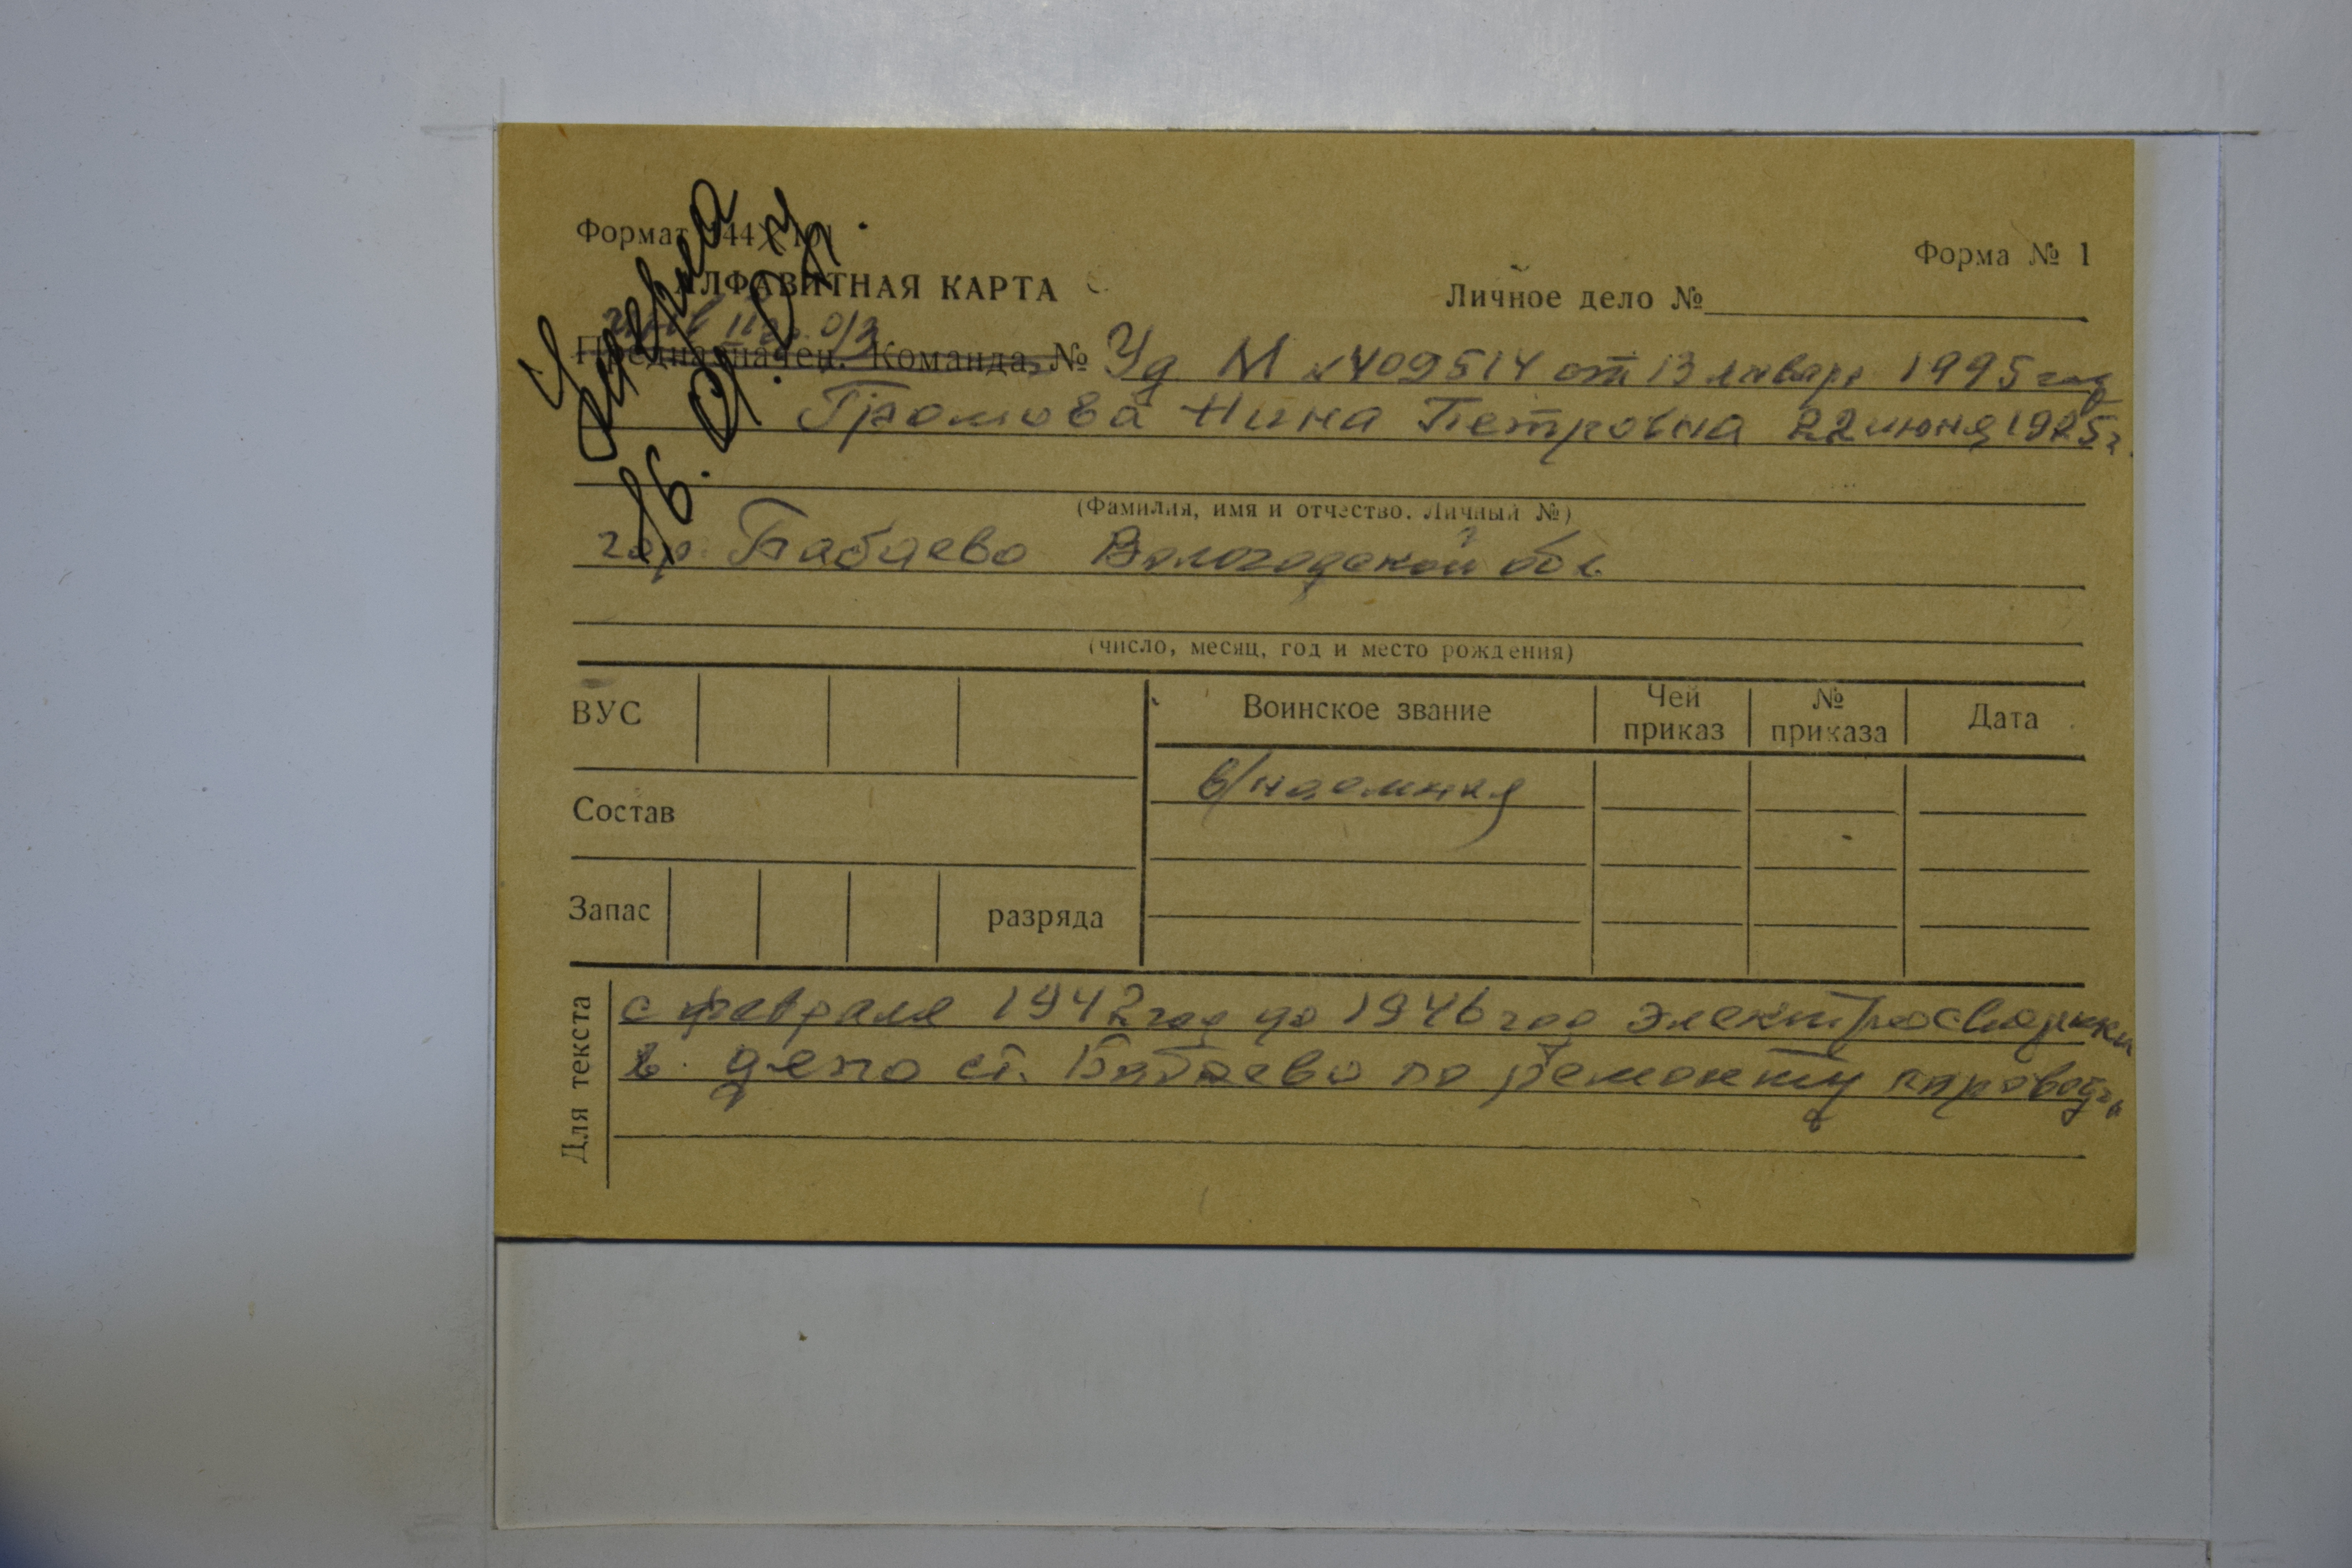 Формат 144×101
Форма № 1
АЛФАВИТНАЯ КАРТА
Личное дело №
Умерла
16.01.
II гр. О/З
Предназначен. Команда. № Уд М №409514 от 13 января 1995 год
Громова Нина Петровна 22 июня 1925 г.
(Фамилия, имя и отчество. Личный №)
гор. Бабаево Вологодской обл
(число, месяц, год и место рождения)
ВУС
Воинское звание
Чей приказ
№ приказа
Дата
в/наемная
Состав
Запас
разряда
Для текста
с февраля 1942 год до 1946 год
в депо ст. Бабаево по ремонту